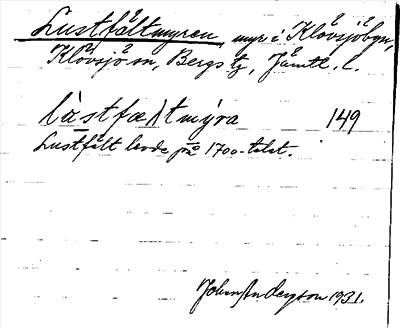 Lustfältmyren myr i Klövsjöbyn,
Klövsjö sn, Bergs tg, Jämtl. l.
làstfæltmýra 149
Lustfält levde på 1700-talet.
John Anderson 1931.